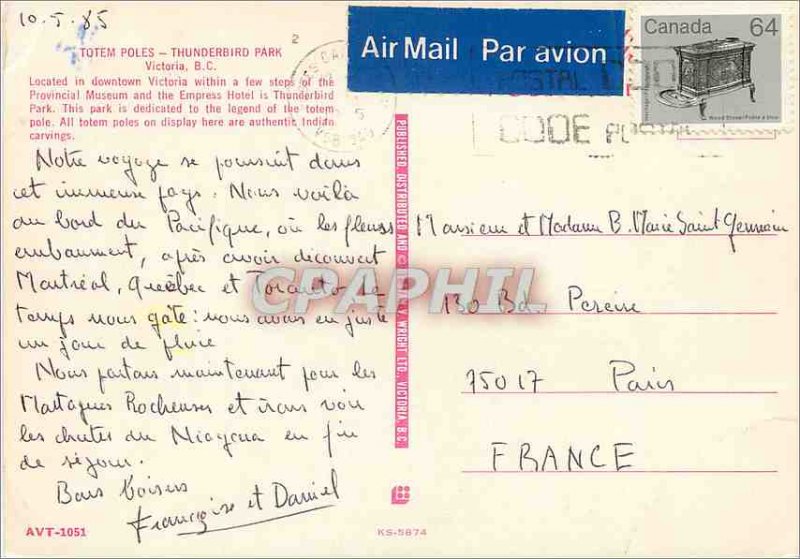 10-5-85
TOTEM POLES – THUNDERBIRD PARK
Victoria, B.C.
Located in downtown Victoria within a few steps of the
Provincial Museum and the Empress Hotel is Thunderbird
Park. This park is dedicated to the legend of the totem
pole. All totem poles on display here are authentic Indian
carvings.
Notre voyage se poursuit dans
cet immense pays. Nous voilà
au bord du Pacifique, où les fleurs
embaument, après avoir découvert
Montréal, Québec et Toronto. Le
temps nous gate : nous avons eu juste
un jour de pluie
Nous partons maintenant pour les
Montagnes Rocheuses et irons voir
les chutes du Niagara en fin
de séjour.
Bons baisers
Françoise et Daniel
AVT-1051
PUBLISHED, DISTRIBUTED AND
WRIGHT LTD., VICTORIA, B.C.
KS-5874
2
Air Mail Par avion
Canada 64
Wood Stove/Poêle à bois
POSTAL
CODE POSTAL
Monsieur et Madame B. Marie Saint Germain
130 Bd. Pereire
75017 Paris
FRANCE
CPAPHIL